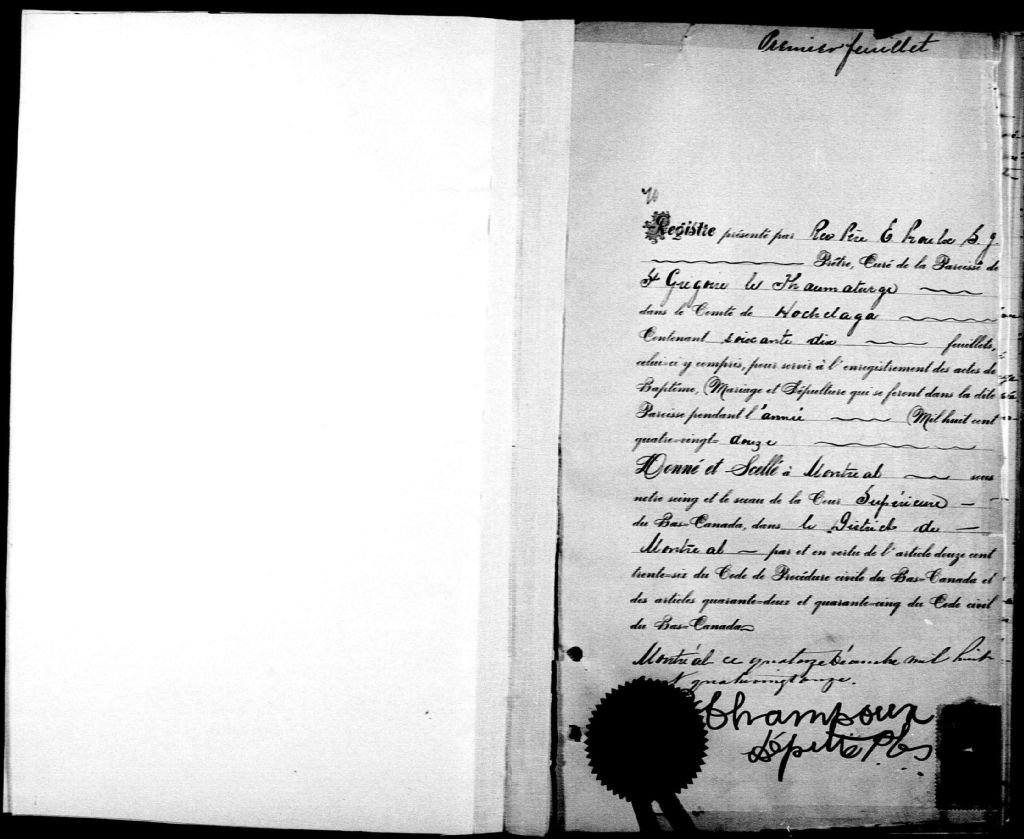 Premier feuillet
70
Registre présenté par Rev Père E S. J.
Prêtre, Curé de la Paroisse de
St Grégoire le Thaumaturge
dans le Comté de Hochelaga
Contenant soixante dix feuillets,
celui-ci y compris, pour servir à l'enregistrement des actes de
Baptême, Mariage et Sépulture qui se feront dans la dite
Paroisse pendant l'année Mil huit cent
quatre-vingt douze
Donné et Scellé à Montréal sous
notre seing et le sceau de la Cour Supérieure
du Bas-Canada, dans le District de
Montréal par et en vertu de l'article douze cent
trente-six du Code de Procédure civile du Bas-Canada et
des articles quarante-deux et quarante-cinq du Code civil
du Bas-Canada
Montréal ce quatorze Décembre mil huit
cent quatrevingt onze.
Champoux
Député P.C.S.